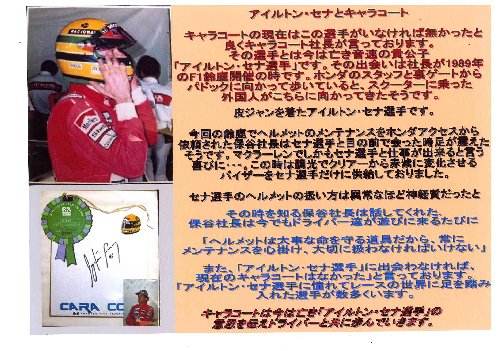 アイルトン・セナとキャラコート
キャラコートの現在はこの選手がいなければ無かったと
良くキャラコート社長が言っております。
その選手とは今は亡き音速の貴公子
「アイルトン・セナ選手」です。その出会いは社長が1989年
のF1鈴鹿開催の時です。ホンダのスタッフと裏ゲートから
パドックに向かって歩いていると、スクーターに乗った
外国人がこちらに向かってきたそうです。
皮ジャンを着たアイルトン・セナ選手です。
今回の鈴鹿でヘルメットのメンテナンスをホンダアクセスから
依頼された保谷社長はセナ選手と目の前で会った時足が震えた
そうです。マクラーレンでしかもセナ選手と仕事が出来ると言う
喜びに・・・。この時は調光でクリアーから赤紫に変化させる
バイザーをセナ選手だけに供給しておりました。
セナ選手のヘルメットの扱い方は異常なほど神経質だったと
その時を知る保谷社長は話してくれた。
保谷社長は今でもドライバー達が遊びに来るたびに
「ヘルメットは大事な命を守る道具だから、常に
メンテナンスを心掛け、大切に扱わなければいけない」
また、「アイルトン・セナ選手」に出会わなければ、
現在のキャラコートはなかった」と言っております。
「アイルトン・セナ選手」に憧れてレースの世界に足を踏み
入れた選手が数多くいます。
キャラコートは今は亡き「アイルトン・セナ選手」の
意思を伝えドライバーと共に歩んでいきます。
NACIONAL
CARA CO